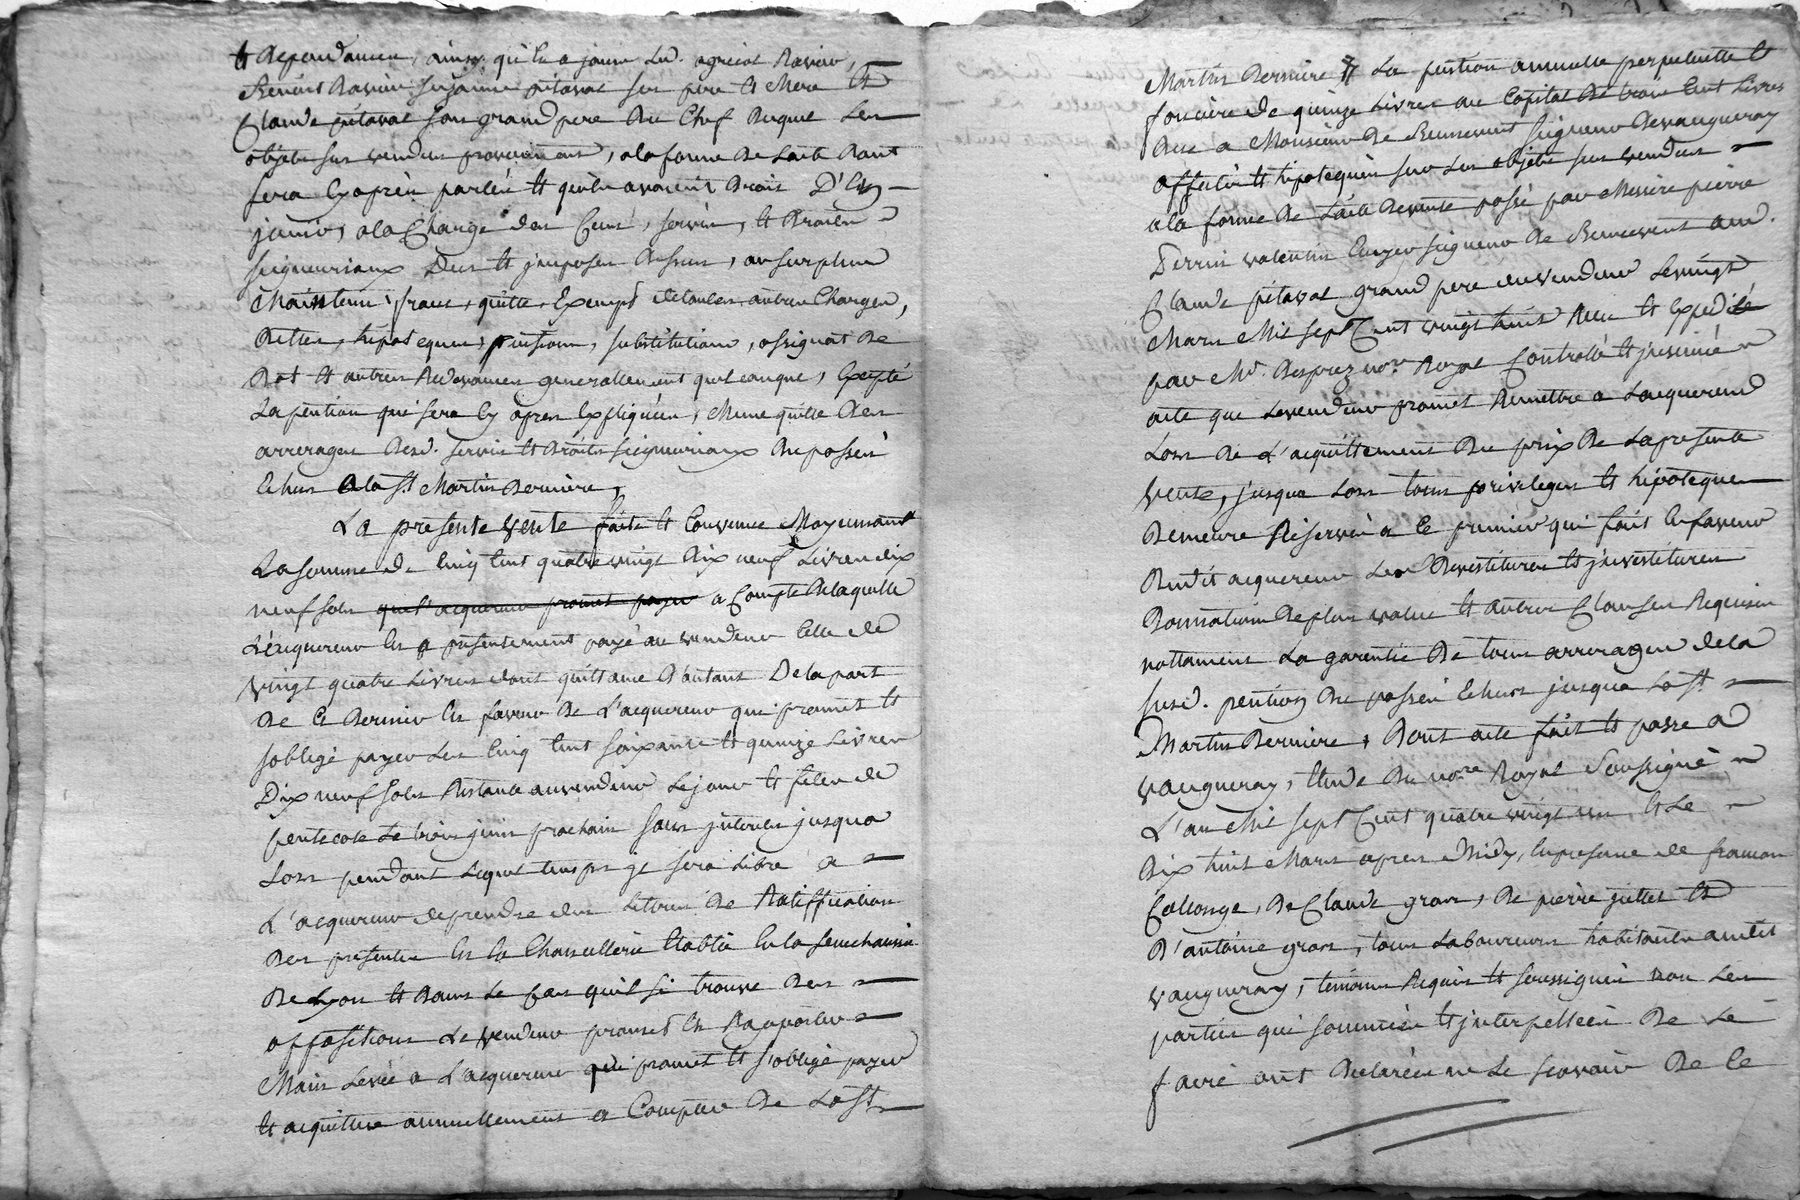 et dependances, ainsy qu'en a jouir led. agricol Ravier,
Benoist Ravier Suzanne pitaval ses pere et Mere et
Claude pitaval son grand pere Du Chef Duquel Les
objets sus vendus proviennent, a la forme De Lacte Dont
sera Cy apres parlée et qu'ils avoient droit D'En
jouir, a la Charge des Cens, servis, et Droits
seigneuriaux Dus et jmposés Dessus, au surplus
Maintenus francs, quitte, Exempt de toutes autres Charges,
Dettes, hipoteques, pensions, substitutions, assignat de
Dot et autres Redevances generallement quelconque, Excepté
La pention qui sera Cy apres Expliquée, Meme quitte des
arrerages Desd. servis et Droits seigneuriaux Du passé
Echus a la St. Martin Derniere,
La presente vente faite et Convenue Moyennant
La somme de Cinq Cent quatre vingt dix neuf Livres dix
neuf sols que l'acquereur promet payer a Compte De laquelle
L'acquereur En a presentement payé au vendeur Celle de
vingt quatre Livres dont quittance d'autant De la part
de Ce Dernier En faveur De L'acquereur qui promet et
s'oblige payer Les Cinq Cent soixante et quinze Livres
Dix neuf sols Restante au vendeur Le jour et fete de
pentecote Le trois juin prochain sans jnterets jusqu'a
Lors pendant Lequel temps il sera Libre a
L'acquereur de prendre des Lettres De Ratiffication
Des presentes En la Chancellerie Etablie En la senechaussée
De Lyon et Dans Le Cas qu'il si trouve Des
oppositions Le vendeur promet En Rapporter
Main Levée a L'acquereur qui promet et s'oblige payer
et acquitter annuellement a Compter De La St.
Martin Derniere La pention annuelle perpetuelle et
fonciere de quinze Livres au Capital De trois Cent Livres
Due a Monsieur De Benevent seigneur De vaugneray
affectée et hipotequée sur Les objets sus vendus
a la forme De L'acte De vente passé par Messire pierre
Perrin valentin seigneur De Benevent aud.
Claude pitaval grand pere du vendeur Le vingt
Mars Mil sept Cent vingt huit Recu et Expedié
par Me. Desprez nore. Royal Controllé et jnsinué
acte que Le vendeur promet Remettre a Lacquereur
Lors de L'acquittement Du prix De La presente
vente, jusqua Lors tous privileges et hipoteques
Demeure Reservée a Ce premier qui fait En faveur
Dudit acquereur Les Devestitures et jnvestitures
Donnation De plus value et autres Clauses Requises
nottament La garentie De tous arrerages de la
susd. pention Du passé Echus jusqua La St.
Martin Derniere, Dont acte fait et passé a
vaugneray, Etude Du nore. Royal Soussigné
L'an Mil sept Cent quatre vingt un, et Le
dix huit Mars apres Midy, En presence de francois
Collonge, De Claude gros, De pierre et
D'antoine gros, tous Laboureurs habitants audit
vaugneray, temoins Requis et soussignés non Les
parties qui sommées et jnterpellées De Le
faire ont Declarées ne Le scavoir De Ce